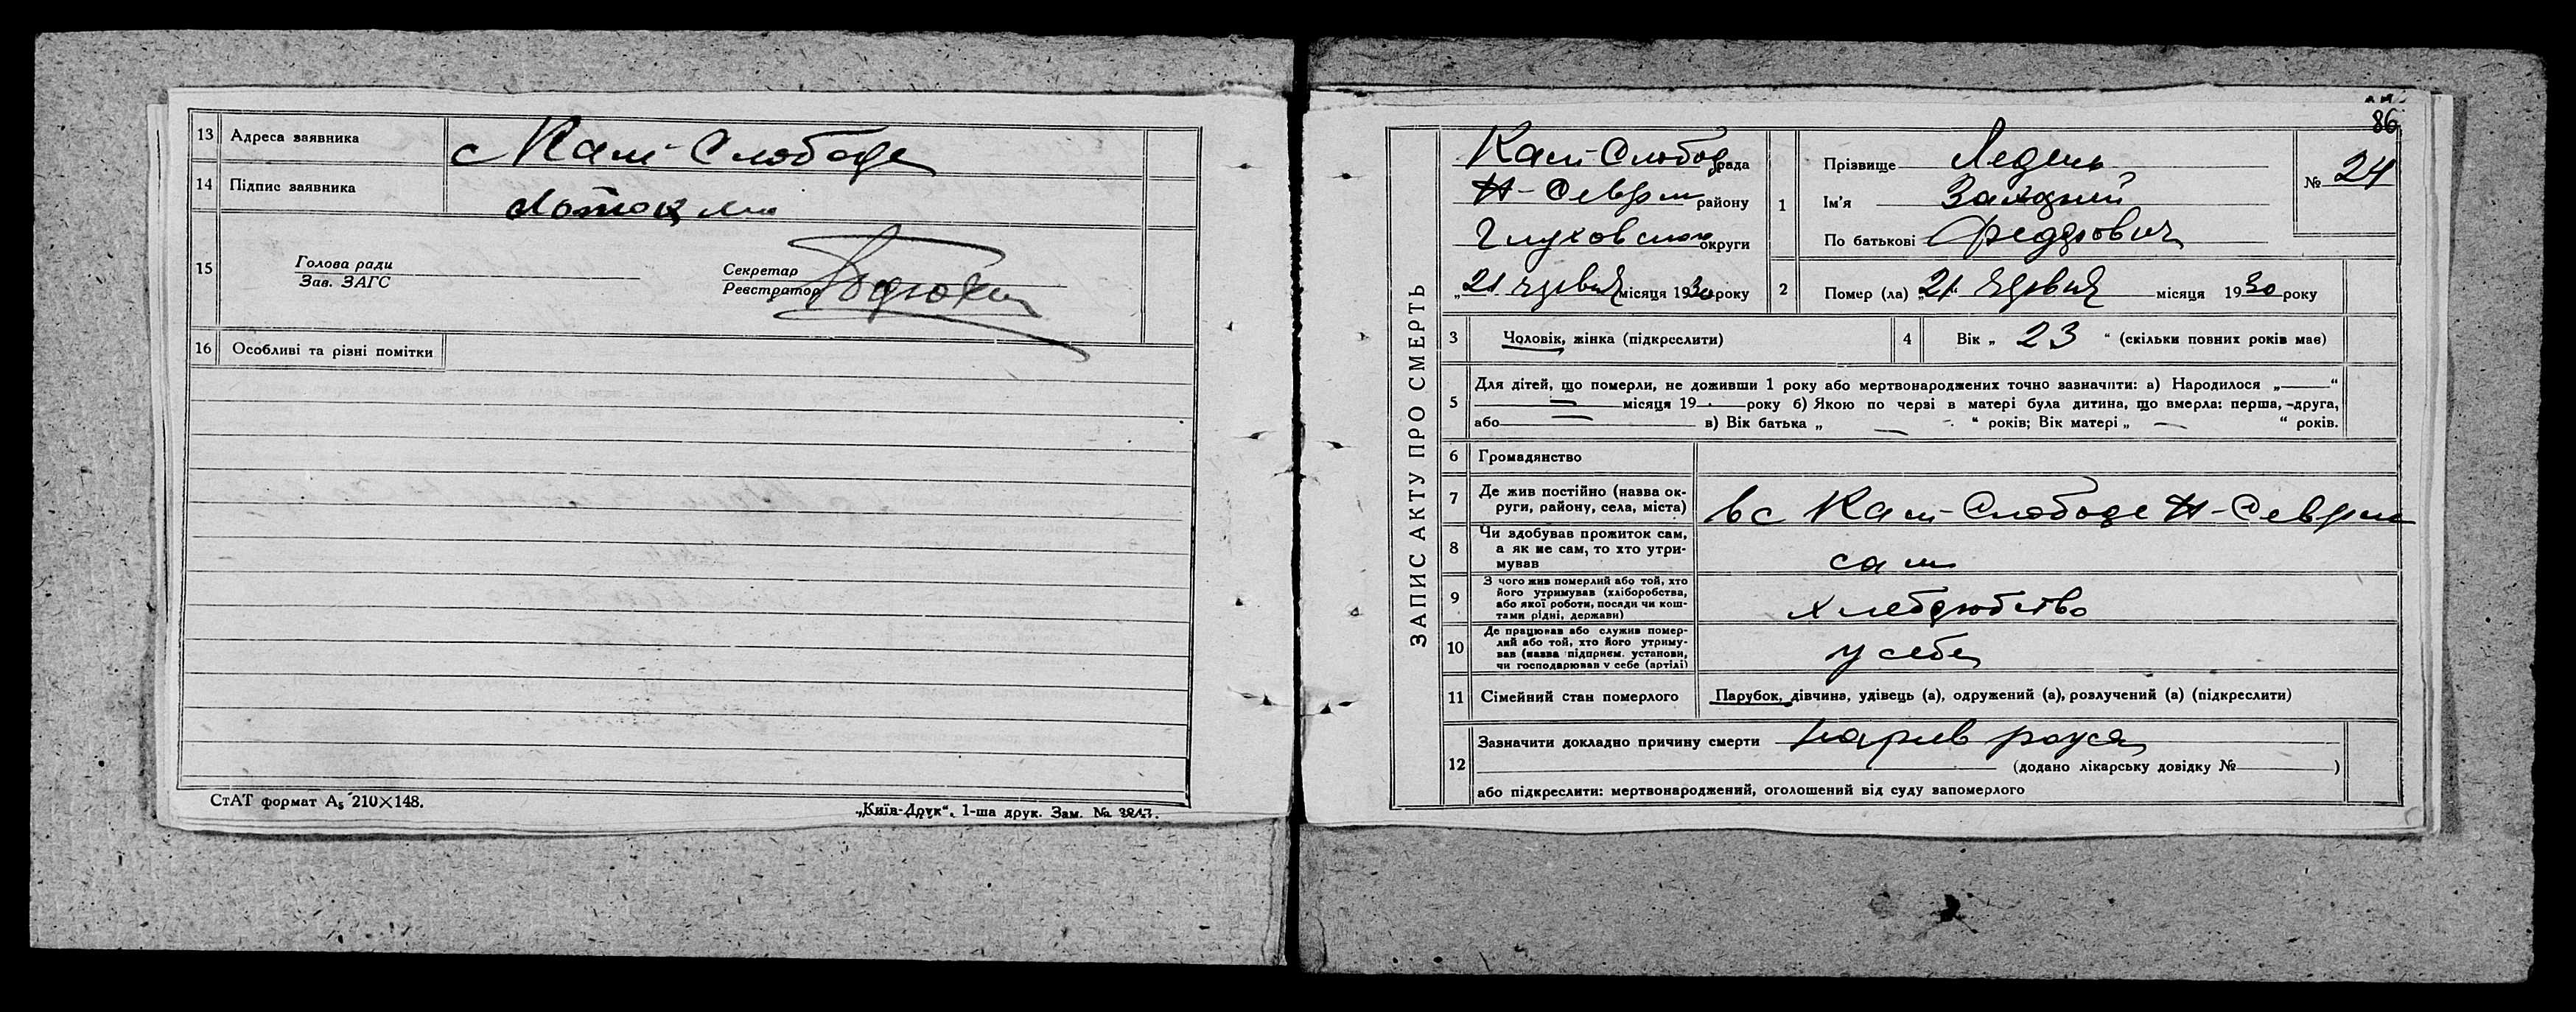 13 Адреса заявника с Кам-Слобода
14 Підпис заявника
15 Голова ради
Зав. ЗАГС
Секретар
Реєстратор
16 Особливі та різні помітки
СтАТ формат А₅ 210×148.
„Київ-Друк“. 1-ша друк. Зам. №
86
ЗАПИС АКТУ ПРО СМЕРТЬ
Кам Слобод рада
Н-Северск району
Глуховской округи
„21 червня місяця 1930 року
1 Прізвище Ледень
Ім'я
По батькові Федорович
№ 24
2 Помер (ла) „21“ червня місяця 1930 року
3 Чоловік, жінка (підкреслити)
4 Вік „ 23 “ (скільки повних років має)
5 Для дітей, що померли, не доживши 1 року або мертвонароджених точно зазначити: а) Народилося „—“
— місяця 19 — року б) Якою по черзі в матері була дитина, що вмерла: перша, друга,
або — в) Вік батька „ — “ років; Вік матері „ — “ років.
6 Громадянство
7 Де жив постійно (назва ок-
руги, району, села, міста) в с Кам-Слободе Н-Северск
8 Чи здобував прожиток сам,
а як не сам, то хто утри-
мував сам
9 З чого жив померлий або той, хто
його утримував (хліборобства,
або якої роботи, посади чи кош-
тами рідні, держави) хлебробство
10 Де працював або служив помер-
лий або той, хто його утриму-
вав (назва підприєм. установи,
чи господарював у себе (артілі) у себе
11 Сімейний стан померлого Парубок, дівчина, удівець (а), одружений (а), розлучений (а) (підкреслити)
12 Зазначити докладно причину смерти
(додано лікарську довідку № )
або підкреслити: мертвонароджений, оголошений від суду запомерлого